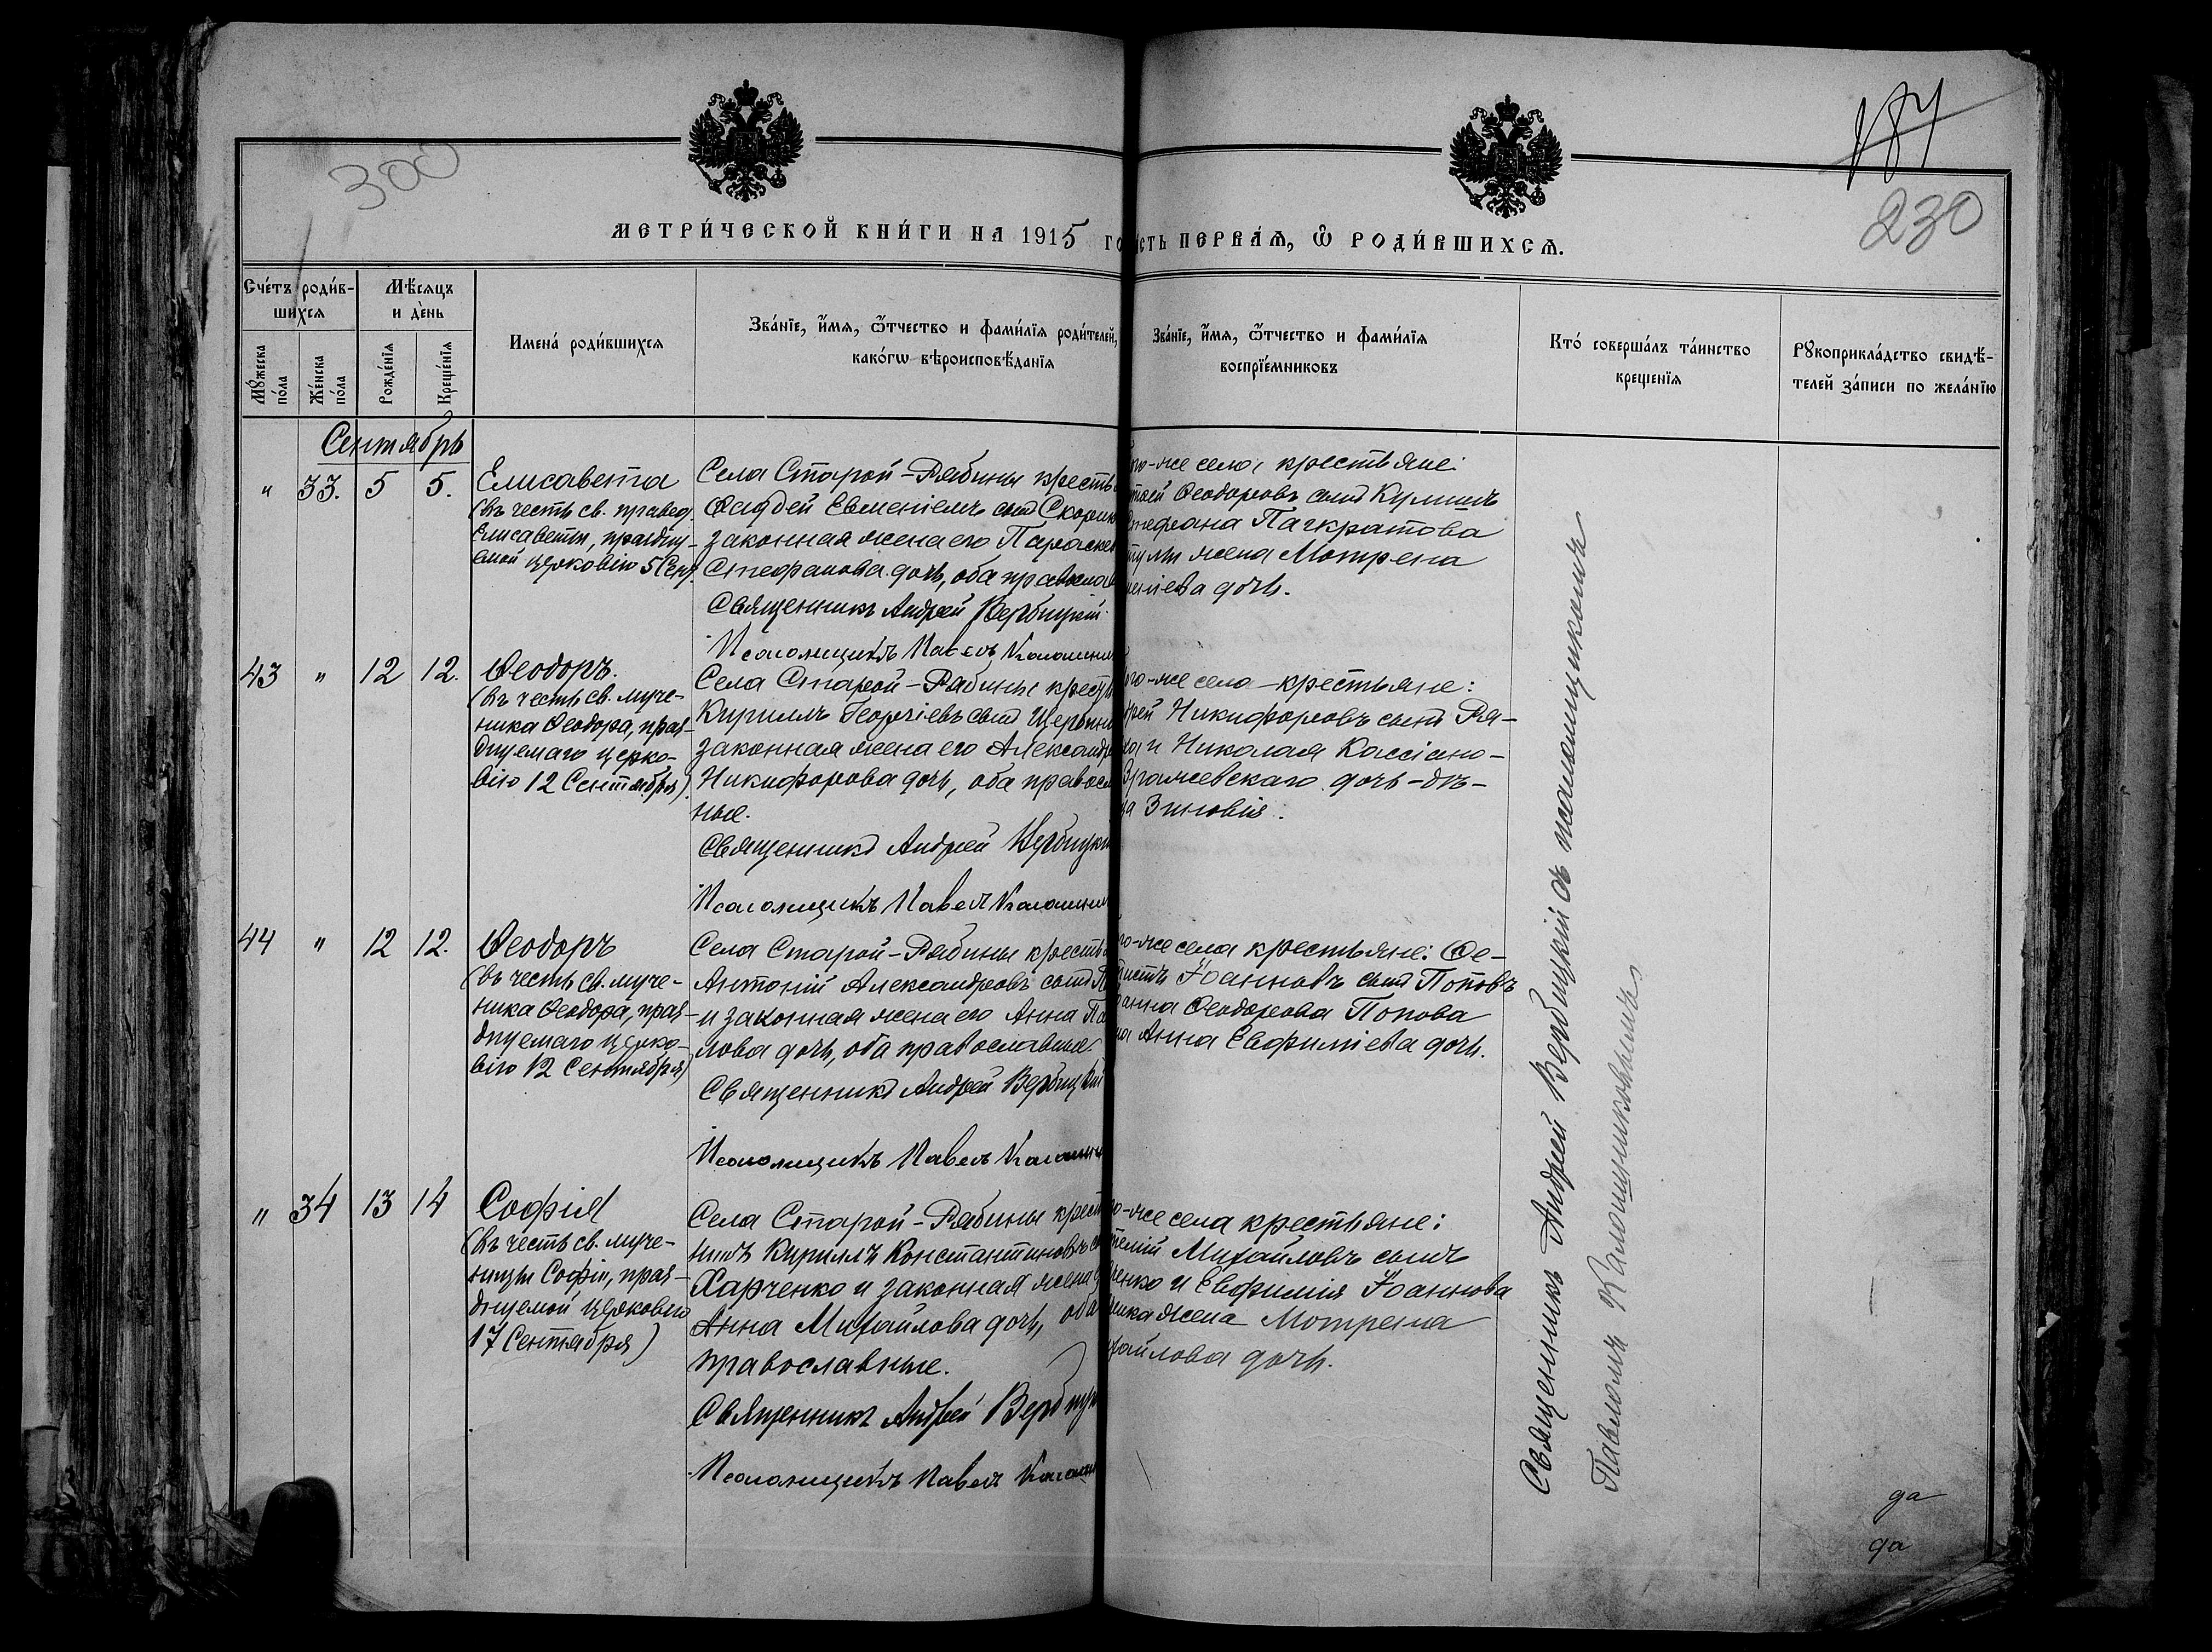 300
184
230
МЕТРИ́ЧЕСКОЙ КНИ́ГИ НА 1915 ГО
СТЬ ПЕРВА́Ѧ, Ѽ РОДИ́ВШИХСѦ.
Сче́тъ роди́в-
шихсѧ
Мꙋ́жеска по́ла
Же́нска по́ла
Мѣ́сѧцъ
и де́нь
Рожде́нїѧ
Креще́нїѧ
Имена́ роди́вшихсѧ
Зва́нїе, и҆́мѧ, ѻ҆́тчество и фами́лїѧ роди́телей,
како́гѡ вѣроисповѣ́данїѧ
Зва́нїе, и҆́мѧ, ѻ҆́тчество и фами́лїѧ
воспрїе́мниковъ
Кто́ соверша́лъ та́инство
креще́нїѧ
Рꙋкоприкла́дство свидѣ́-
телей за́писи по жела́нїю
Сентябрь
" 33. 5 5.
Елисавета
(въ честь св. правед.
Елисаветы, праздну-
емой церковію 5 Сен.
Села Старой-Рябины кресть
Фаддей Евменіевъ сынъ Скорик
законная жена его Параскев
Стефанова дочь, оба правосла
Священникъ Андрей Вербицкій
Псаломщикъ Павелъ Калашни
го-же села крестьяне:
Ѳеодоровъ сынъ Кулишъ
тефана Панкратова
жена Мотрена
еніева дочь.
43 " 12 12.
Ѳеодоръ.
(въ честь св. муче-
ника Ѳеодора, праз-
днуемаго церко-
вію 12 Сентября).
Села Старой-Рябины крест
Кириллъ Георгіевъ сынъ Щербин
законная жена его Александр
Никифорова дочь, оба правосл
ные.
Священникъ Андрей Вербицки
Псаломщикъ Павелъ Калашни
го-же села крестьяне:
рей Никифоровъ сынъ Ря-
и Николая Кассіано-
Врамевскаго дочь-дѣ-
ца Зиновія.
44 " 12 12.
Ѳеодоръ
(въ честь св. муче-
ника Ѳеодора, праз-
днуемаго церко-
вію 12 Сентября)
Села Старой-Рябины кресть
Антоній Александровъ сынъ П
и законная жена его Анна Па
лова дочь, оба православные.
Священникъ Андрей Вербицкій
Псаломщикъ Павелъ Калашн
го-же села крестьяне: Ѳе-
истъ Іоанновъ сынъ Поповъ
Ѳеодорова Попова
на Анна Евфиміева дочь.
" 34 13 14
Софія
(въ честь св. муче-
ницы Софіи, праз-
днуемой церковію
17 Сентября)
Села Старой-Рябины крест
нинъ Кириллъ Константиновъ с
Харченко и законная жена
Анна Михайлова дочь, оба
православные.
Священникъ Андрей Вербицк
Псаломщикъ Павелъ Калаш
го-же села крестьяне:
Михайловъ сынъ
ченко и Евфимія Іоаннова
жена Мотрена
хайлова дочь.
Священникъ Андрей Вербицкій съ псаломщикомъ
Павломъ Калашниковымъ
да
да